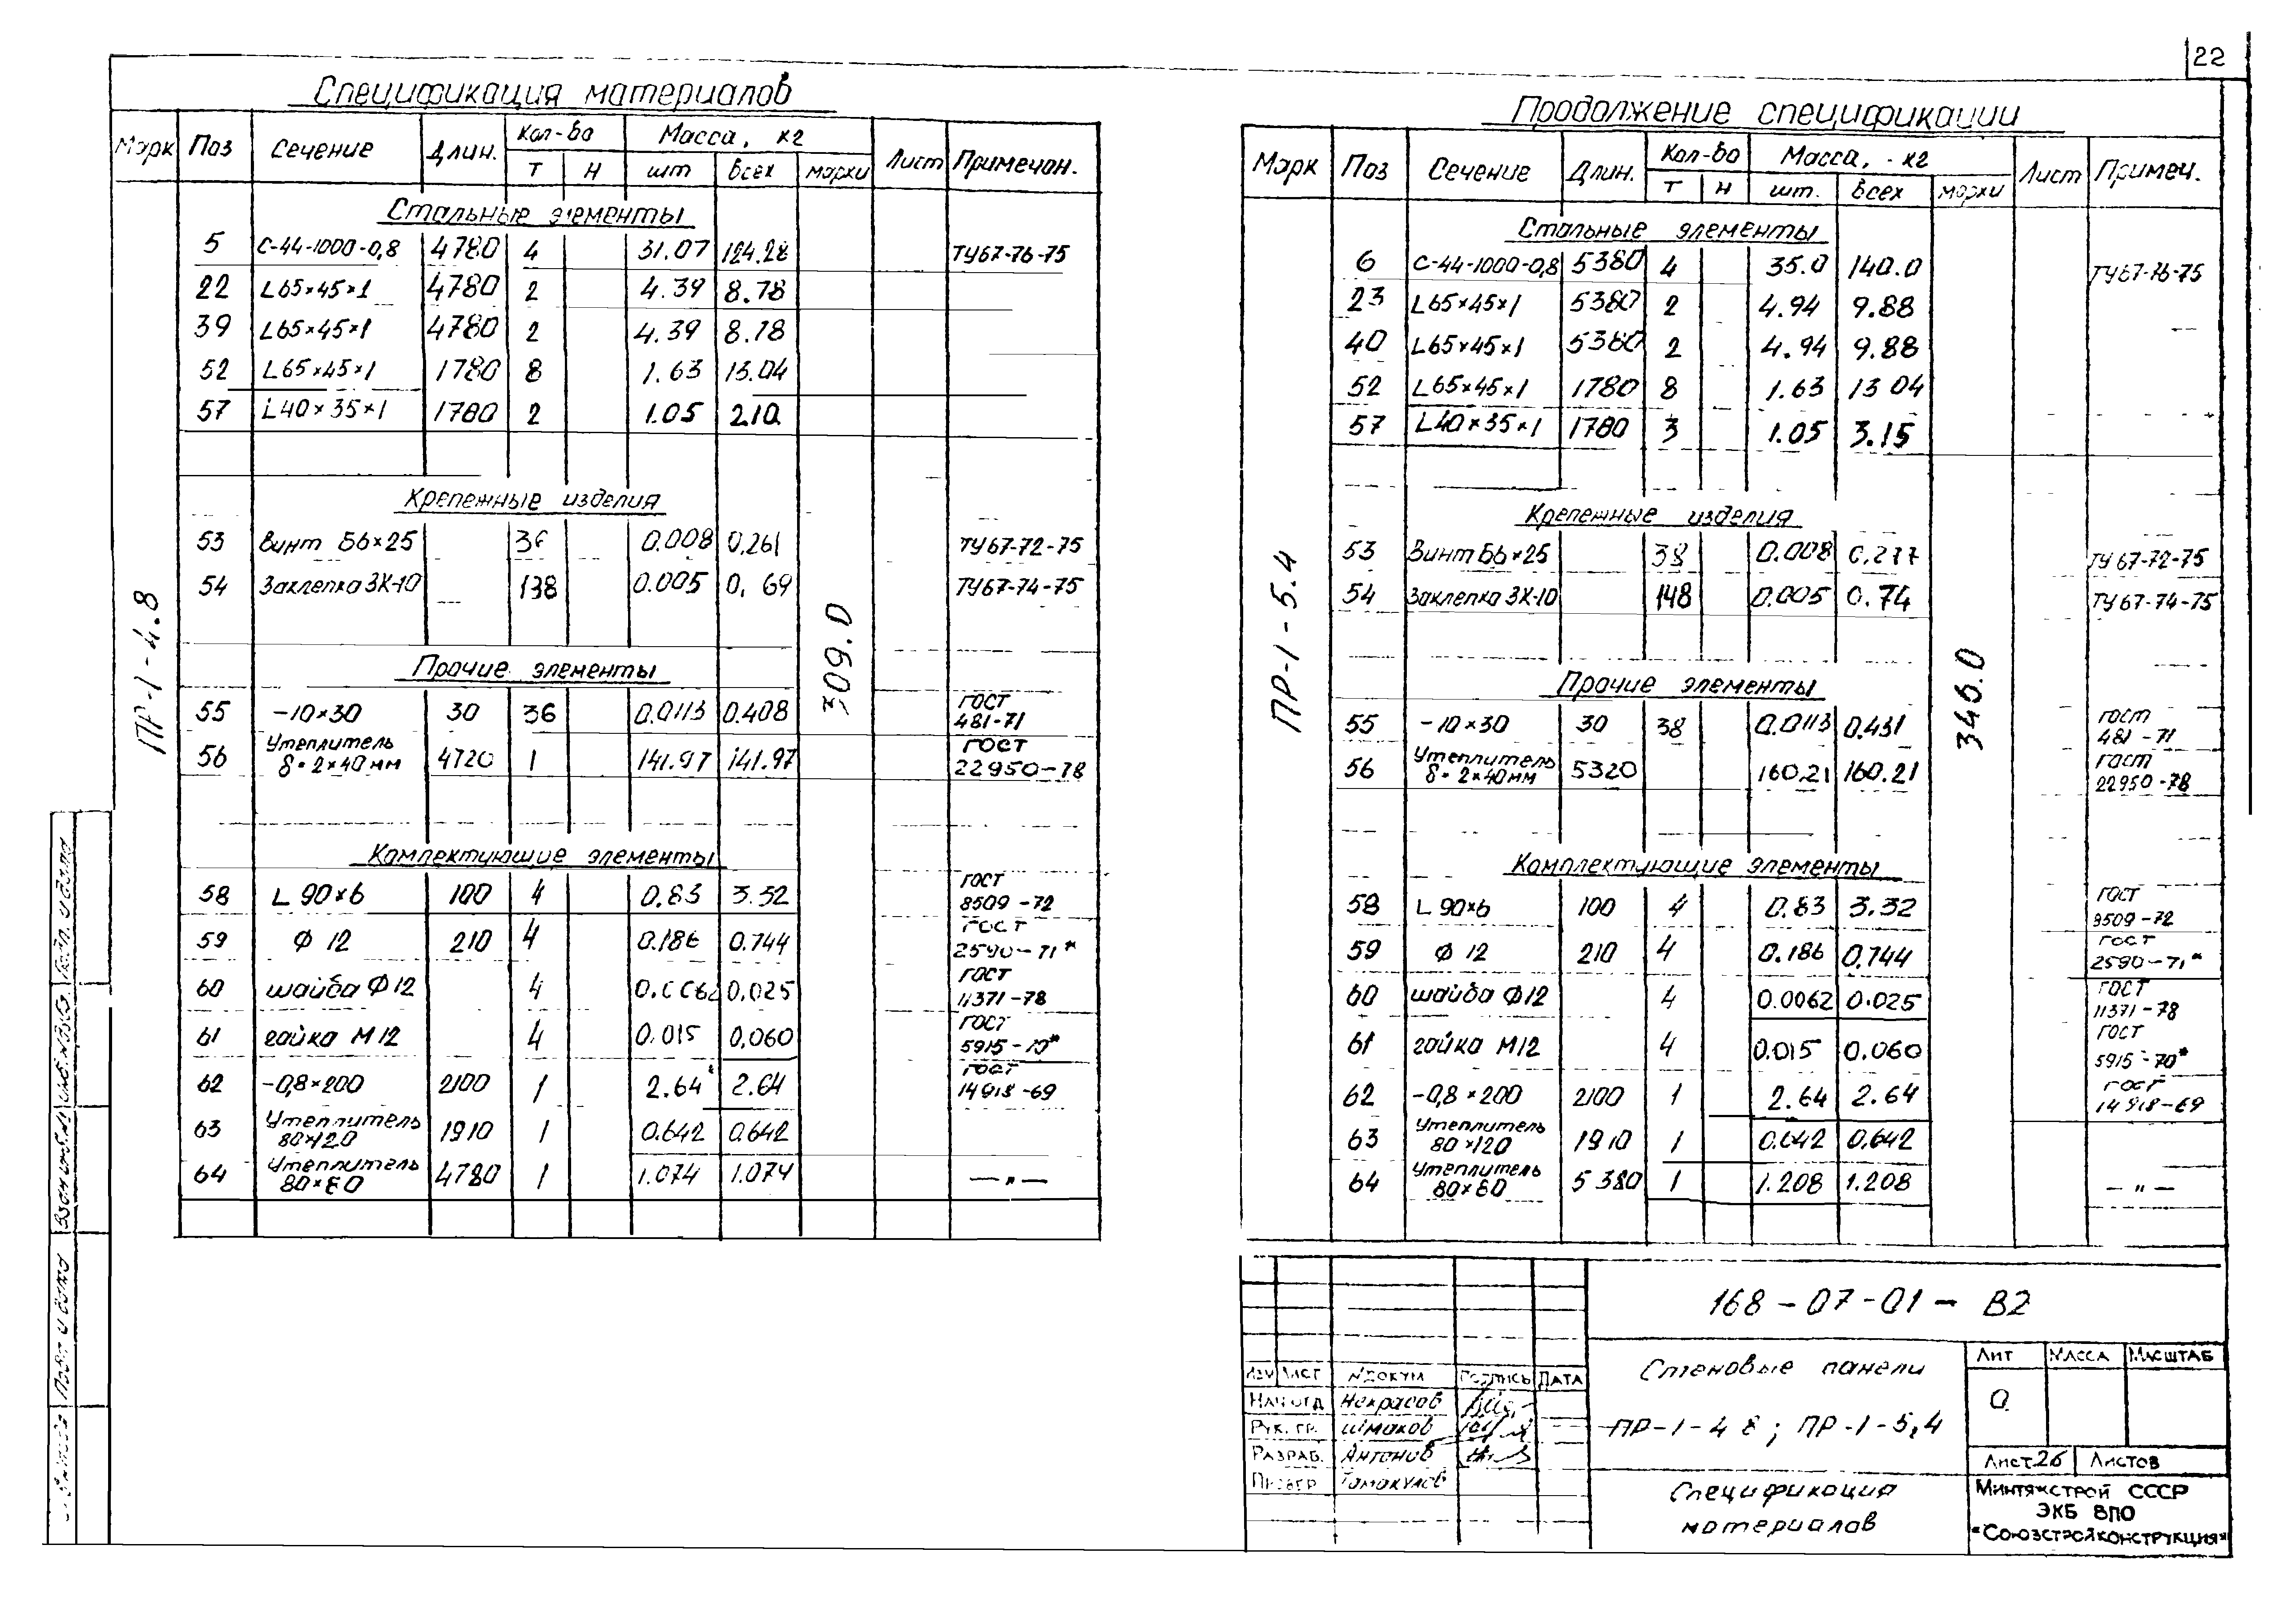 22
Спецификация материалов
Марк Поз Сечение Длин. Кол-во Масса, кг Лист Примечан.
Т Н шт всех марки
ПР-1-4.8
309.0
Стальные элементы
5 С-44-1000-0,8 4780 4 31.07 124.28 ТУ67-76-75
22 L65×45×1 4780 2 4.39 8.78
39 L65×45×1 4780 2 4.39 8.78
52 L65×45×1 1780 8 1.63 13.04
57 L40×35×1 1780 2 1.05 2.10
Крепежные изделия
53 Винт Б6×25 36 0.008 0,261 ТУ67-72-75
54 Заклепка ЗК-10 138 0.005 0,69 ТУ67-74-75
Прочие элементы
55 -10×30 30 36 0.0113 0.408 ГОСТ 481-71
56 Утеплитель δ=2×40мм 4720 1 141.97 141.97 ГОСТ 22950-78
Комплектующие элементы
58 L 90×6 100 4 0.83 3.32 ГОСТ 8509-72
59 Ф 12 210 4 0.186 0.744 ГОСТ 2590-71*
60 шайба Ф12 4 0.0062 0,025 ГОСТ 11371-78
61 гайка М12 4 0.015 0,060 ГОСТ 5915-70*
62 -0,8×200 2100 1 2.64 2.64 ГОСТ 14918-69
63 Утеплитель 80×120 1910 1 0.642 0.642
64 Утеплитель 80×60 4780 1 1.074 1.074 —"—
Продолжение спецификации
Марк Поз Сечение Длин. Кол-во Масса, кг Лист Примеч.
Т Н шт. всех марки
ПР-1-5.4
346.0
Стальные элементы
6 С-44-1000-0,8 5380 4 35.0 140.0 ТУ67-76-75
23 L65×45×1 5380 2 4.94 9.88
40 L65×45×1 5380 2 4.94 9.88
52 L65×45×1 1780 8 1.63 13 04
57 L40×35×1 1780 3 1.05 3.15
Крепежные изделия
53 Винт Б6×25 38 0.008 0,277 ТУ67-72-75
54 Заклепка ЗК-10 148 0.005 0.74 ТУ67-74-75
Прочие элементы
55 -10×30 30 38 0.0113 0.431 ГОСТ 481-71
56 Утеплитель δ=2×40мм 5320 160.21 160.21 ГОСТ 22950-78
Комплектующие элементы
58 L 90×6 100 4 0.83 3.32 ГОСТ 8509-72
59 Ф 12 210 4 0.186 0,744 ГОСТ 2590-71*
60 шайба Ф12 4 0.0062 0.025 ГОСТ 11371-78
61 гайка М12 4 0.015 0.060 ГОСТ 5915-70*
62 -0,8×200 2100 1 2.64 2.64 ГОСТ 14918-69
63 Утеплитель 80×120 1910 1 0.642 0,642
64 Утеплитель 80×60 5380 1 1.208 1.208 —"—
168-07-01- В2
Изм Лист №Докум Подпись Дата
Нач отд Некрасов
Рук. гр. Шмаков
Разраб. Антонив
Провер
Стеновые панели
ПР-1-4 8; ПР-1-5,4
Спецификация
материалов
Лит Масса Масштаб
0
Лист 26 Листов
Минтяжстрой СССР
ЭКБ ВПО
"Союзстройконструкция"
Подп. и дата
Взам инв.№
Подп и дата